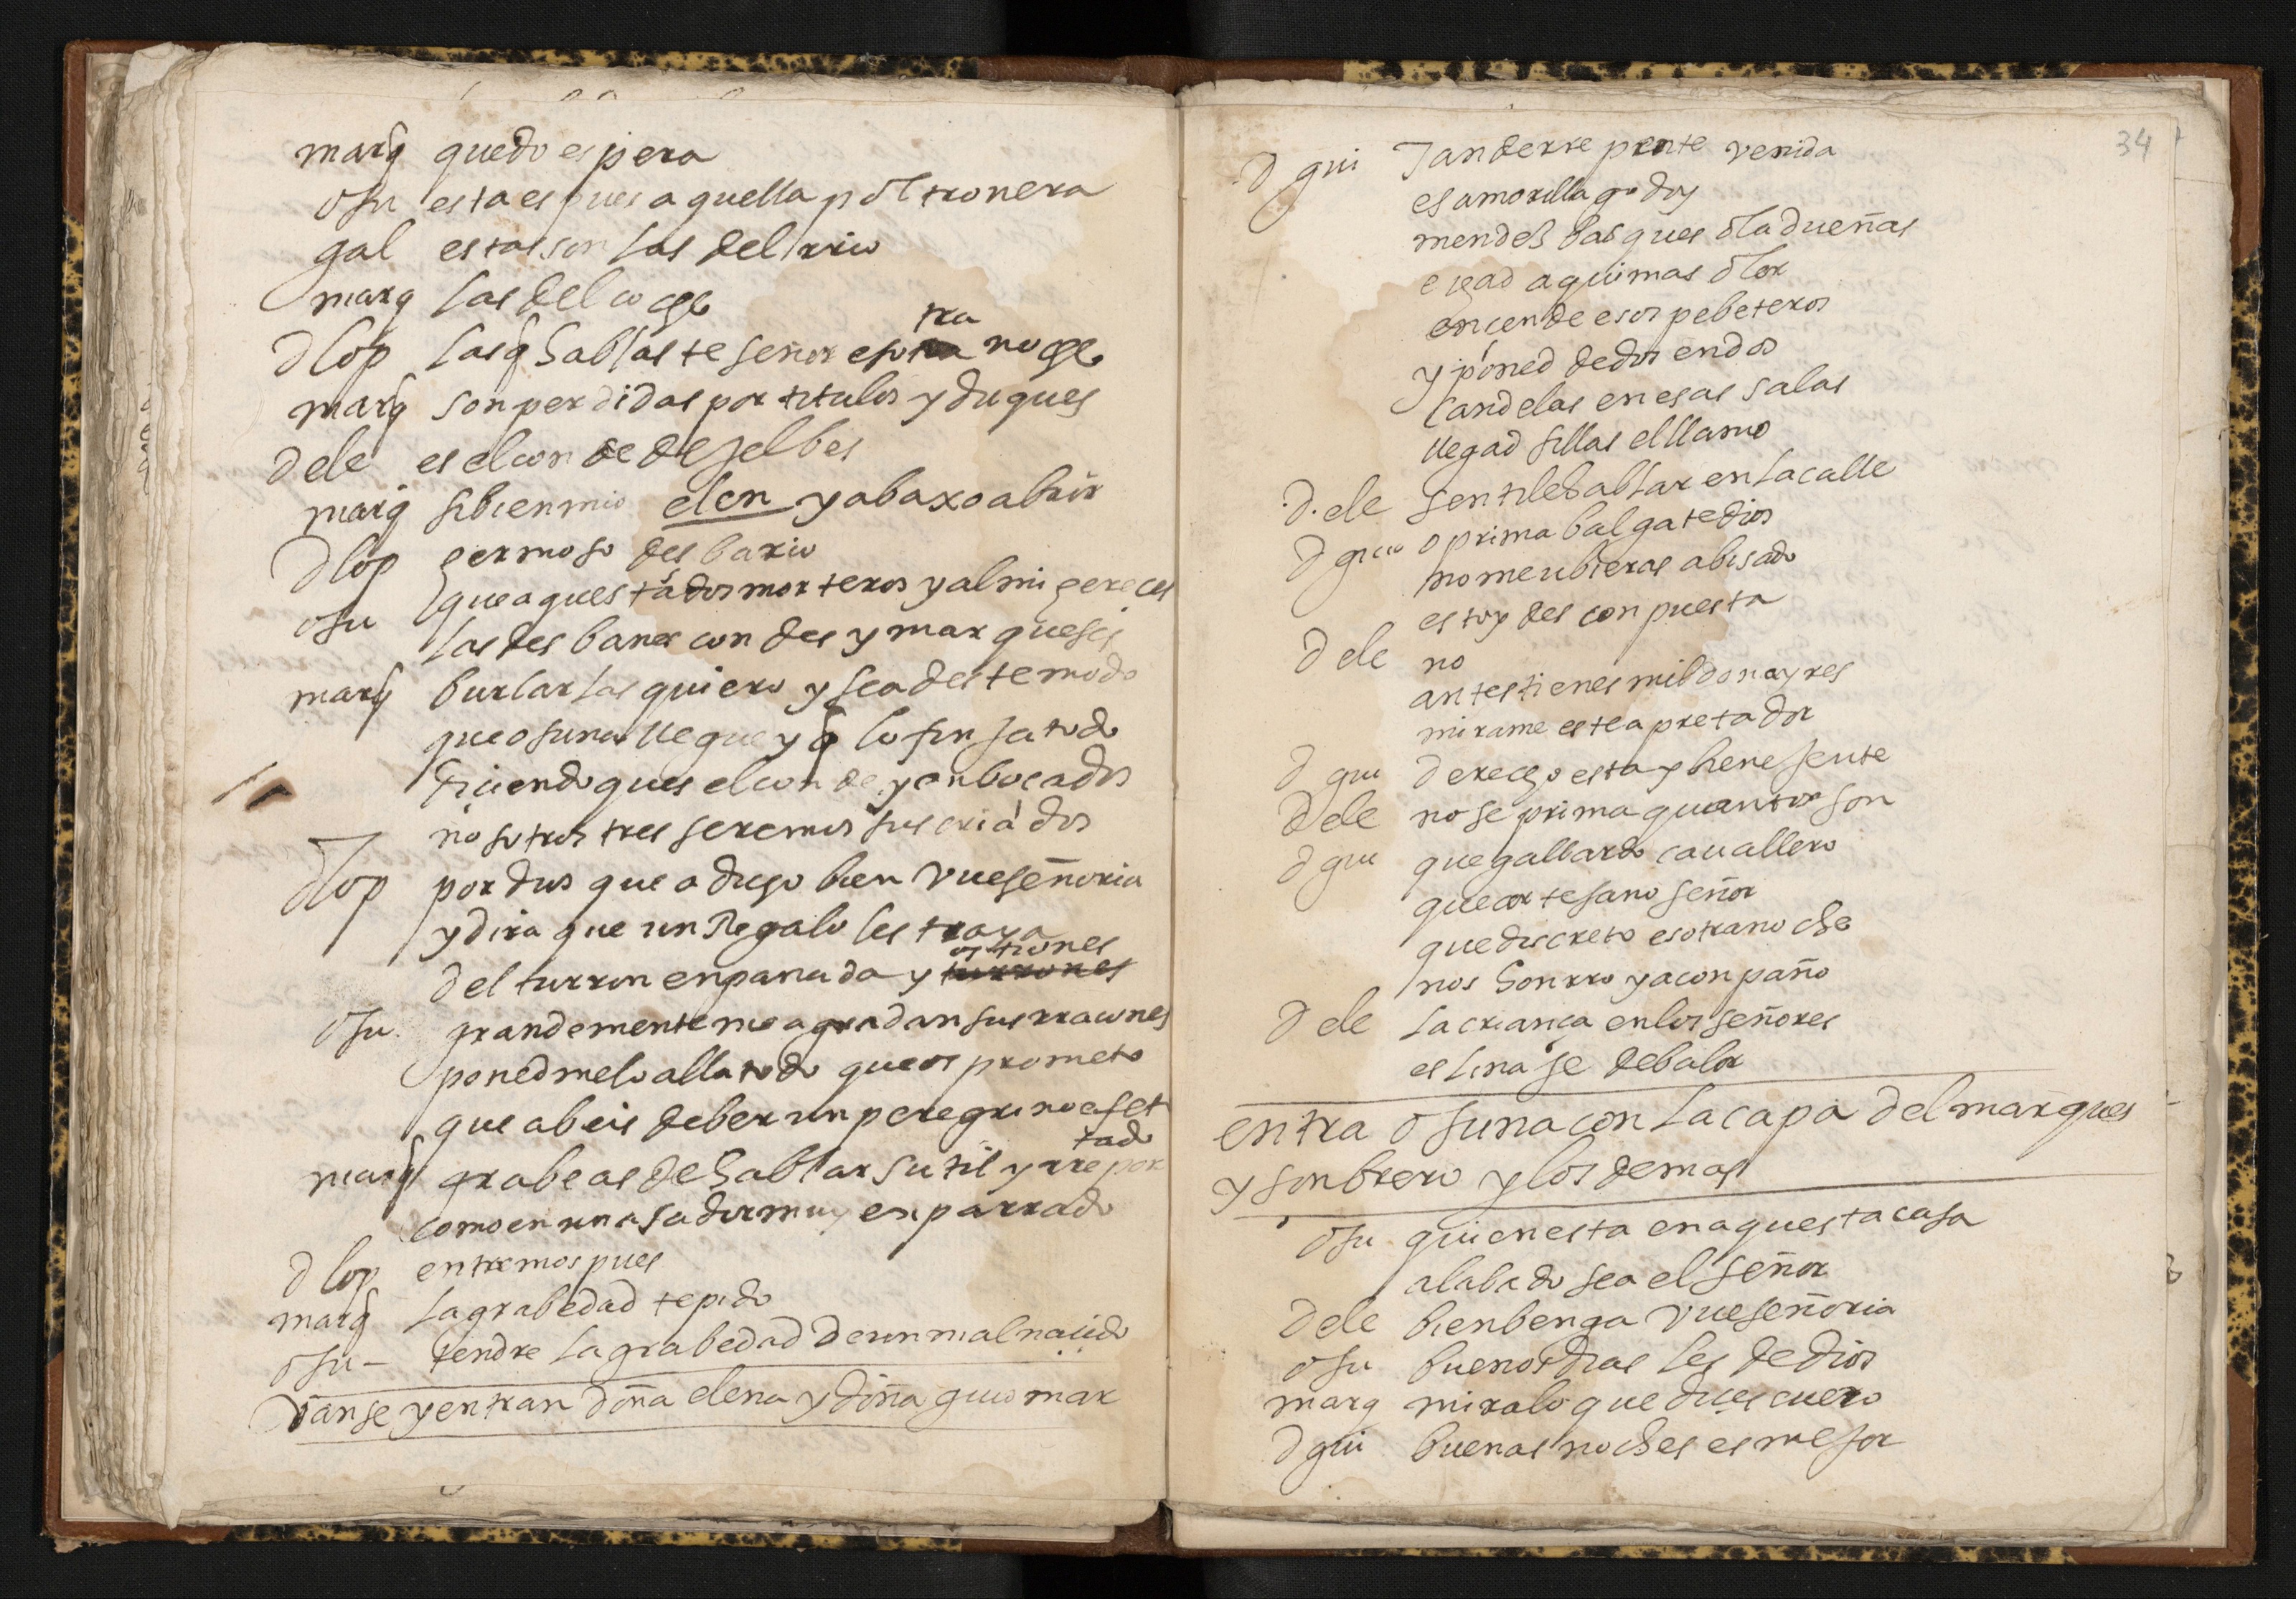 marq quedo espera
osu esta es pues aquella poltronera
gal estas son las del rrio
marq las del coche
d lop las q hablaste señor esotra noche
marq son perdidas por titulos y duques
d ele es el conde de gelbes
marq si bien mio elen y abaxo abrir
d lop hermoso desbario
osu que aquestados morteros y almireces
las desbanes condes y marqueses
marq burlarlas quiero y sea deste modo
que osuna llegue y q lo finja todo
diciendo ques el conde y enbocados
nosotros tres seremos sus criados
d lop por dios que a dicho bien vueseñoria
y dira que un Regalo les traya
del turron enpanada y ostiones
osu grandemente me agradan sus rraciones
ponedmelo alla todo que os prometo
que abeis de ber un peregrino efet
marq grabe as de hablar sutil y rrepor tado
como en un asador muy enparrado
d lop entremos pues
marq la grabedad te pido
osu - tendre la grabedad de un mal nacido
Vanse y entran doña elena y doña guiomar
34
d gui
es amorilla godoy
mendez basques ola dueñas
echad aqui mas olor
encende esos pebeteros
y poned de dos en dos
candelas en esas salas
llegad sillas ellllamo
d. ele senti le hablar en la calle
d guio o prima balgate dios
no me ubieras abisado
estoy desconpuesta
d ele no
antes tienes mil donayres
mirame este apretador
d gui derecho esta y biene jente
d ele no se prima quantos son
d gui que gallardo cauallero
que cortesano señor
que discreto esotra noche
nos honrro y aconpaño
d ele la criança en los señores
es linaje de balor
entra osuna con la capa del marques
y sonbrero y los demas
osu quien esta en aquesta casa
alabado sea el señor
d ele bienbenga vueseñoria
osu buenos dias les de dios
marq mira lo que dices cuero
d gui buenas noches es mejor